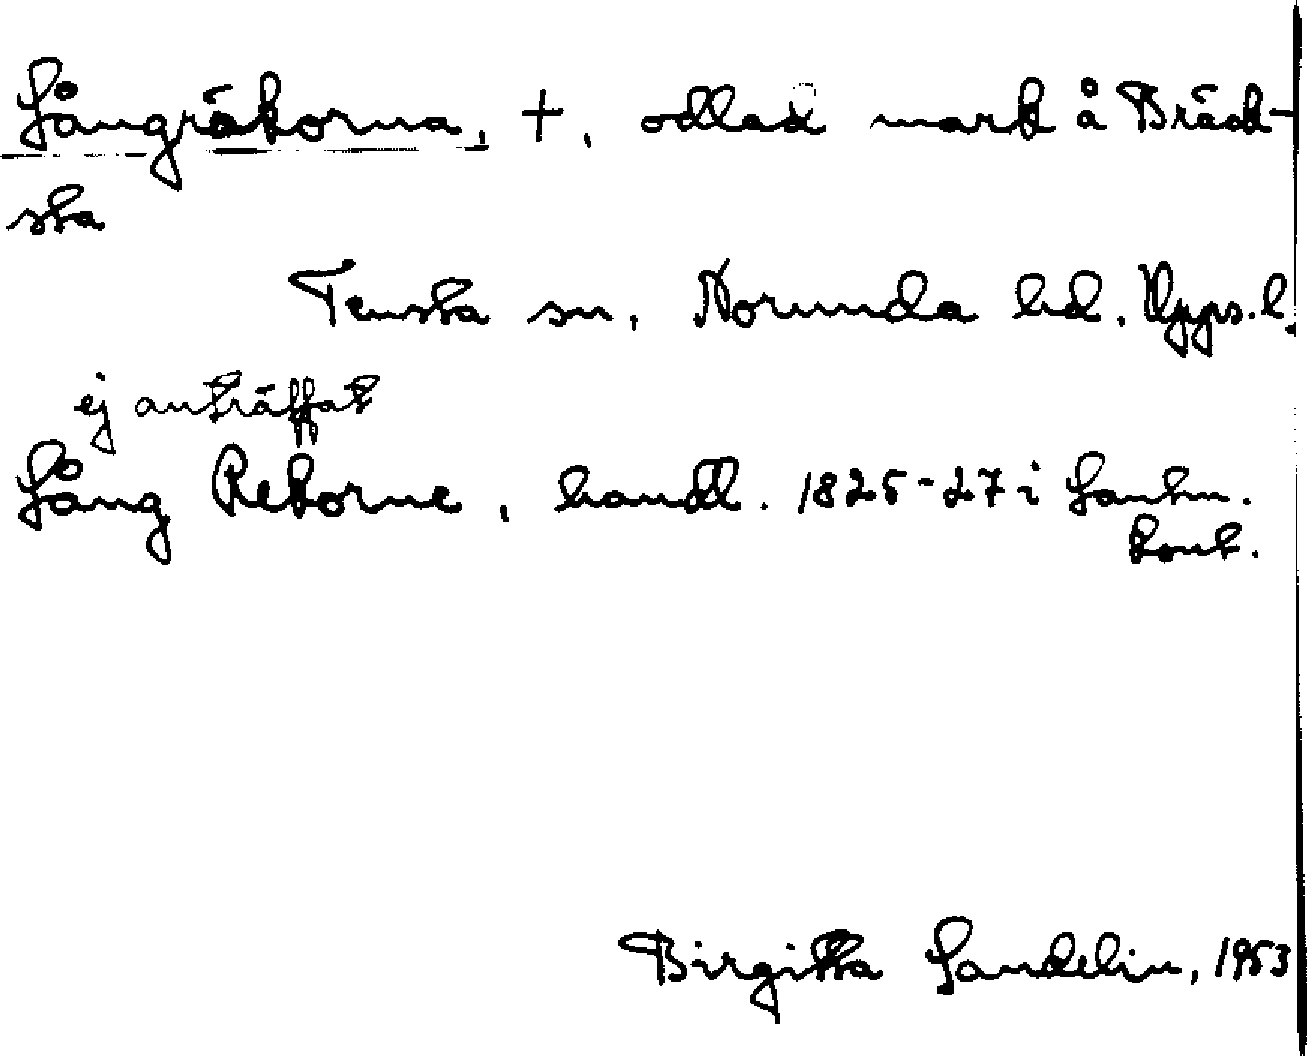 Långräkorna, +, odlad mark å Bräck-
sta
Tensta sn. Norunda hd. Upps.l.
ej anträffat
Lång Rekorne, handl. 1825-27 i Lantm.
kont.
Birgitta Landelin, 1953